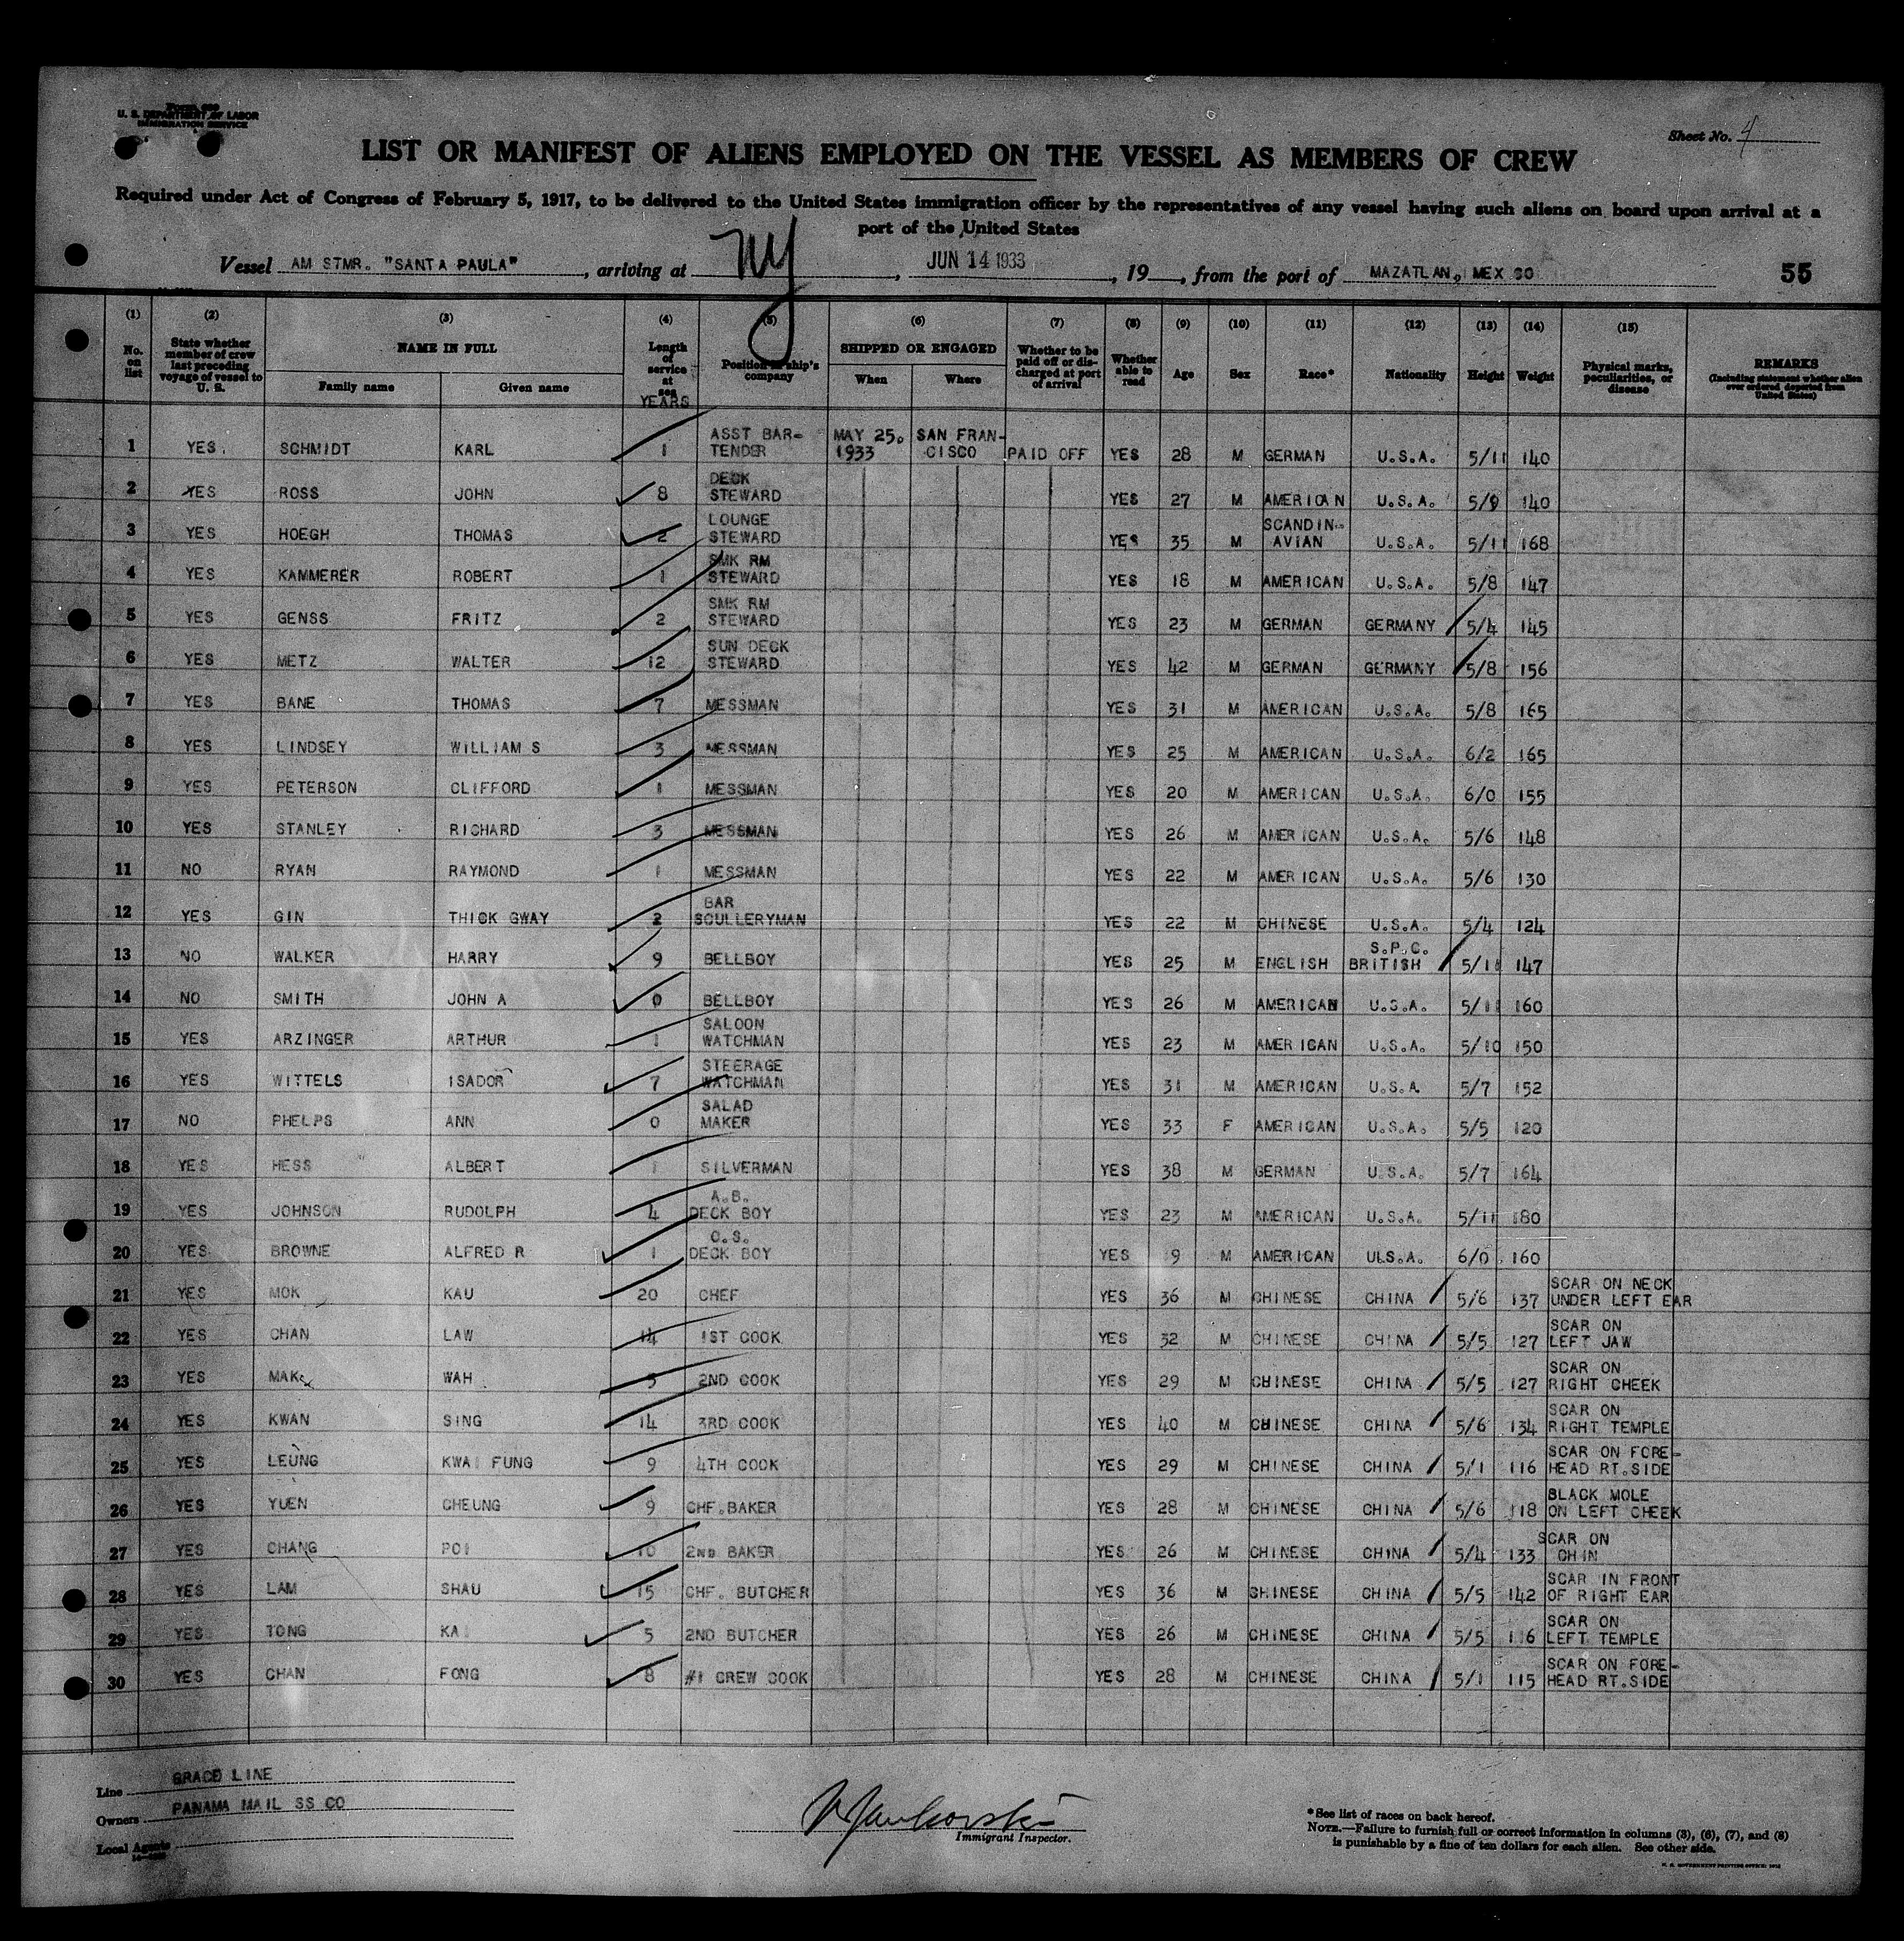 Form 680
U. S. DEPARTMENT OF LABOR
IMMIGRATION SERVICE
Sheet No. 4
LIST OR MANIFEST OF ALIENS EMPLOYED ON THE VESSEL AS MEMBERS OF CREW
Required under Act of Congress of February 5, 1917, to be delivered to the United States immigration officer by the representatives of any vessel having such aliens on board upon arrival at a
port of the United States
Vessel AM STMR. "SANTA PAULA", arriving at NY, JUN 14 1933, 19 , from the port of MAZATLAN, MEX CO 55
(1) (2) (3) (4) (5) (6) (7) (8) (9) (10) (11) (12) (13) (14) (15)
No. on list State whether member of crew last preceding voyage of vessel to U. S. NAME IN FULL Family name Given name Length of service at sea YEARS Position in ship's company SHIPPED OR ENGAGED When Where Whether to be paid off or discharged at port of arrival Whether able to read Age Sex Race* Nationality Height Weight Physical marks, peculiarities, or disease REMARKS (Including statement whether alien ever ordered deported from United States)
1 YES. SCHMIDT KARL 1 ASST BAR-TENDER MAY 25. 1933 SAN FRAN-CISCO PAID OFF YES 28 M GERMAN U.S.A. 5/11 140
2 YES ROSS JOHN 8 DECK STEWARD YES 27 M AMERICAN U.S.A. 5/9 140
3 YES HOEGH THOMAS 2 LOUNGE STEWARD YES 35 M SCANDIN-AVIAN U.S.A. 5/11 168
4 YES KAMMERER ROBERT 1 SMK RM STEWARD YES 18 M AMERICAN U.S.A. 5/8 147
5 YES GENSS FRITZ 2 SMK RM STEWARD YES 23 M GERMAN GERMANY 5/4 145
6 YES METZ WALTER 12 SUN DECK STEWARD YES 42 M GERMAN GERMANY 5/8 156
7 YES BANE THOMAS 7 MESSMAN YES 31 M AMERICAN U.S.A. 5/8 165
8 YES LINDSEY WILLIAM S 3 MESSMAN YES 25 M AMERICAN U.S.A. 6/2 165
9 YES PETERSON CLIFFORD 1 MESSMAN YES 20 M AMERICAN U.S.A. 6/0 155
10 YES STANLEY RICHARD 3 MESSMAN YES 26 M AMERICAN U.S.A. 5/6 148
11 NO RYAN RAYMOND 1 MESSMAN YES 22 M AMERICAN U.S.A. 5/6 130
12 YES GIN THICK GWAY 2 BAR SCULLERYMAN YES 22 M CHINESE U.S.A. 5/4 124
13 NO WALKER HARRY 9 BELLBOY YES 25 M ENGLISH S.P.C. BRITISH 5/11 147
14 NO SMITH JOHN A 0 BELLBOY YES 26 M AMERICAN U.S.A. 5/11 160
15 YES ARZINGER ARTHUR 1 SALOON WATCHMAN YES 23 M AMERICAN U.S.A. 5/10 150
16 YES WITTELS ISADOR 7 STEERAGE WATCHMAN YES 31 M AMERICAN U.S.A 5/7 152
17 NO PHELPS ANN 0 SALAD MAKER YES 33 F AMERICAN U.S.A. 5/5 120
18 YES HESS ALBERT 1 SILVERMAN YES 38 M GERMAN U.S.A. 5/7 164
19 YES JOHNSON RUDOLPH 4 A.B. DECK BOY YES 23 M AMERICAN U.S.A. 5/11 180
20 YES BROWNE ALFRED R 1 O.S. DECK BOY YES 9 M AMERICAN ULS.A. 6/0 160
21 YES MOK KAU 20 CHEF YES 36 M CHINESE CHINA 5/6 137 SCAR ON NECK UNDER LEFT EAR
22 YES CHAN LAW 14 1ST COOK YES 32 M CHINESE CHINA 5/5 127 SCAR ON LEFT JAW
23 YES MAK WAH 5 2ND COOK YES 29 M CHINESE CHINA 5/5 127 SCAR ON RIGHT CHEEK
24 YES KWAN SING 14 3RD COOK YES 40 M CHINESE CHINA 5/6 134 SCAR ON RIGHT TEMPLE
25 YES LEUNG KWAI FUNG 9 4TH COOK YES 29 M CHINESE CHINA 5/1 116 SCAR ON FORE-HEAD RT.SIDE
26 YES YUEN CHEUNG 9 CHF.BAKER YES 28 M CHINESE CHINA 5/6 118 BLACK MOLE ON LEFT CHEEK
27 YES CHANG POI 10 2ND BAKER YES 26 M CHINESE CHINA 5/4 133 SCAR ON CHIN
28 YES LAM SHAU 15 CHF. BUTCHER YES 36 M CHINESE CHINA 5/5 142 SCAR IN FRONT OF RIGHT EAR
29 YES TONG KAI 5 2ND BUTCHER YES 26 M CHINESE CHINA 5/5 SCAR ON LEFT TEMPLE
30 YES CHAN FONG 8 #1 CREW COOK YES 28 M CHINESE CHINA 5/1 115 SCAR ON FORE-HEAD RT.SIDE
Line GRACE LINE
Owners PANAMA MAIL SS CO
Local Agents
Immigrant Inspector.
*See list of races on back hereof.
NOTE.—Failure to furnish full or correct information in columns (3), (6), (7), and (8)
is punishable by a fine of ten dollars for each alien. See other side.
U. S. GOVERNMENT PRINTING OFFICE: 1932